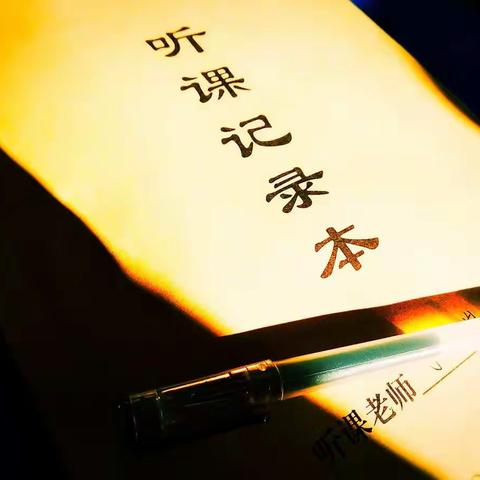 听课记录本
听课老师